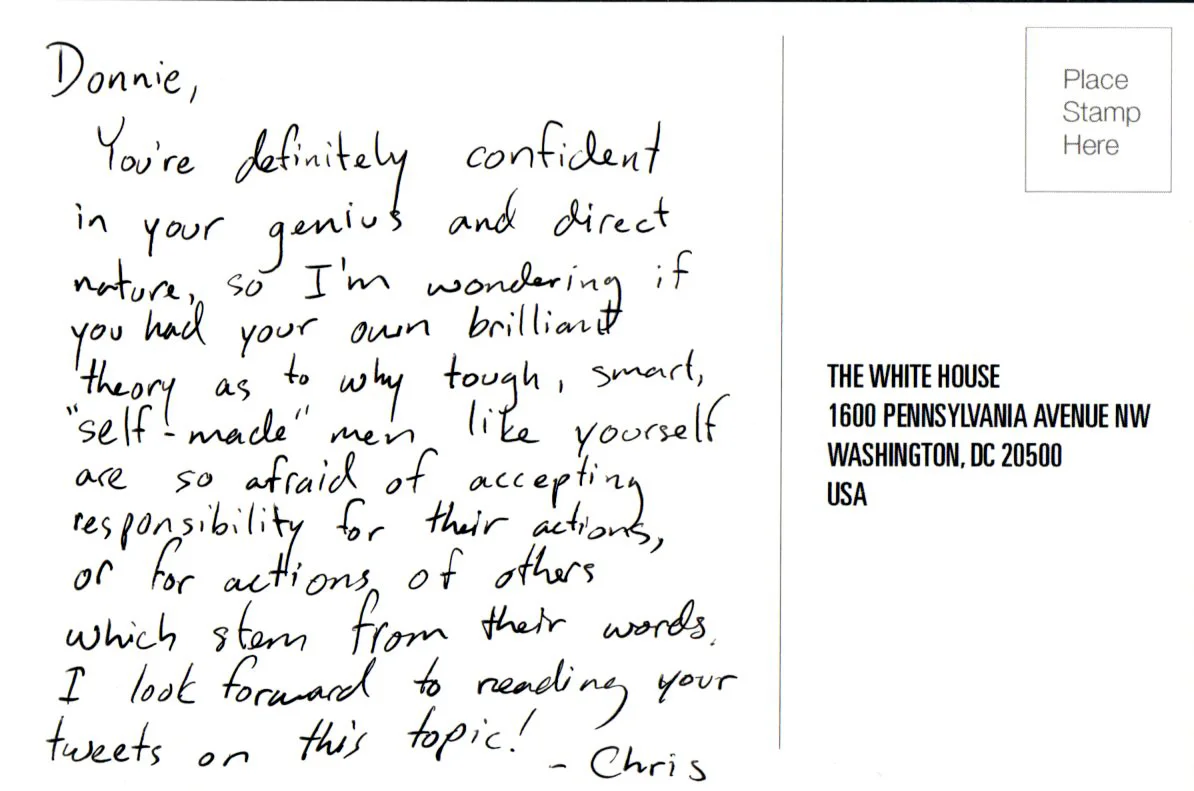 Donnie,
You're definitely confident
in your genius and direct
nature, so I'm wondering if
you had your own brilliant
theory as to why tough, smart,
"self-made" men like yourself
are so afraid of accepting
responsibility for their actions,
or for actions of others
which stem from their words.
I look forward to reading your
tweets on this topic!
- Chris
Place
Stamp
Here
THE WHITE HOUSE
1600 PENNSYLVANIA AVENUE NW
WASHINGTON, DC 20500
USA